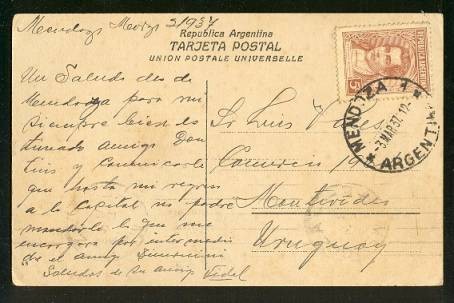 Mendoza Marzo 3/1937
Republica Argentina
TARJETA POSTAL
UNION POSTALE UNIVERSELLE
Un Saludo desde
Mendoza para mi
siempre bien es
timado amigo Don
Luis y comunicarle
que hasta mi regreso
a la Capital no podre
mandarle lo que me
encargara por intermedio
de el amigo
Saludos de su amigo Fidel
Sr Luis
Montevideo
Uruguay
5
MENDOZA
3 MAR 37 12
ARGENTINA